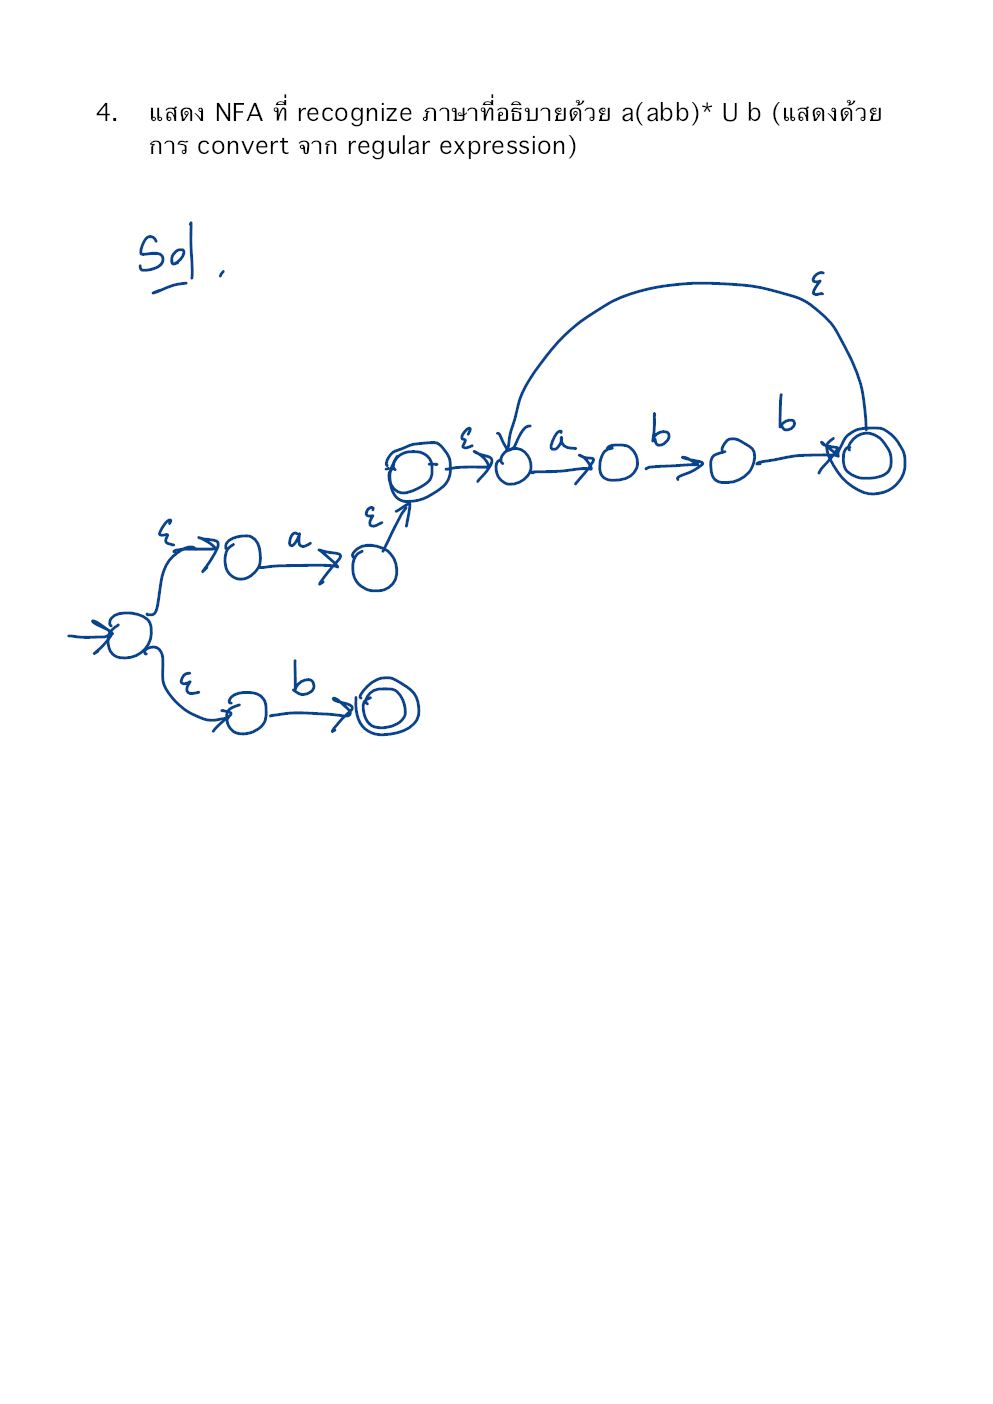 4. แสดง NFA ที่ recognize ภาษาที่อธิบายด้วย a(abb)* U b (แสดงด้วย
การ convert จาก regular expression)
Sol.
ε
b
b
ε a
ε
ε a
ε b